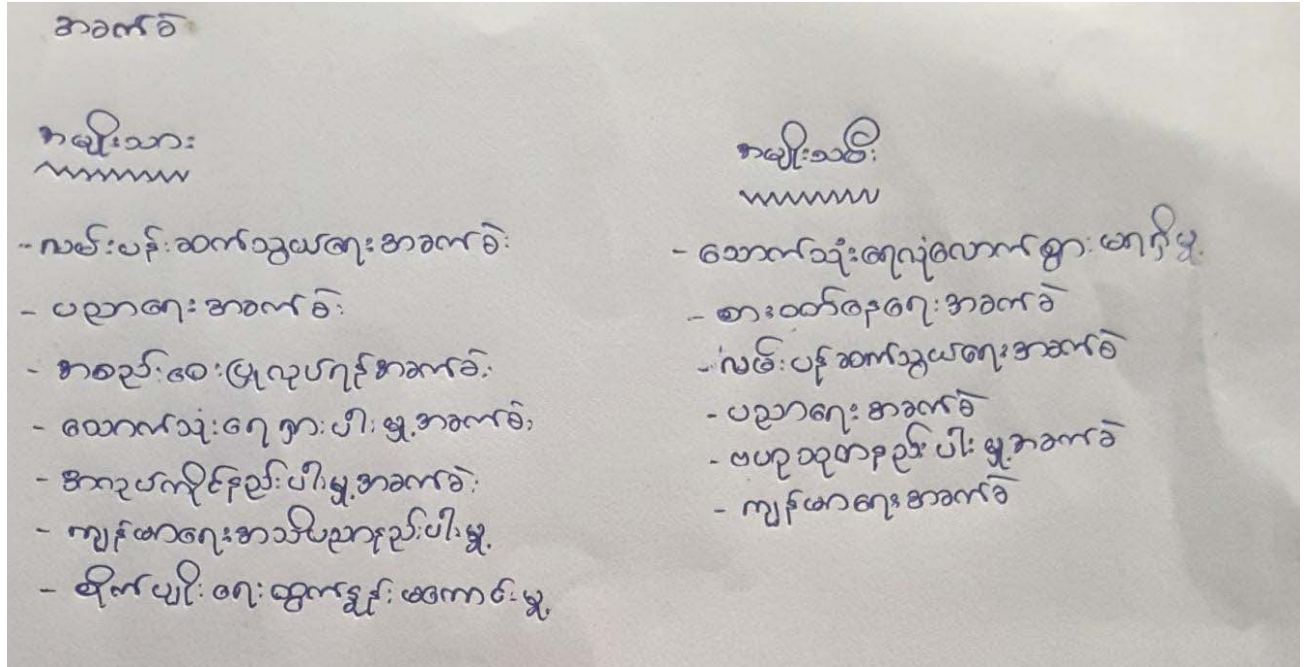 အခက်ခဲ
အမျိုးသား
- လမ်းပန်းဆက်သွယ်ရေးအခက်ခဲ
- ပညာရေးအခက်ခဲ
- အစည်းဝေးပြုလုပ်ရန်အခက်ခဲ
- သောက်သုံးရေ ရှားပါးမှု့အခက်ခဲ
- နည်းပါးမှု့အခက်ခဲ
- ကျန်မာရေးအသိပညာနည်းပါးမှု့
- စိုက်ပျိုးရေးထွက်နှုန်းမကောင်းမှု့
အမျိုးသမီး
- သောက်သုံးရေလုံလောက်စွာ မရှိမှု့
- စားဝတ်နေရေးအခက်ခဲ
- လမ်းပန်ဆက်သွယ်ရေးအခက်ခဲ
- ပညာရေးအခက်ခဲ
- ဗဟုသုတနည်းပါးမှု့အခက်ခဲ
- ကျန်မာရေးအခက်ခဲ